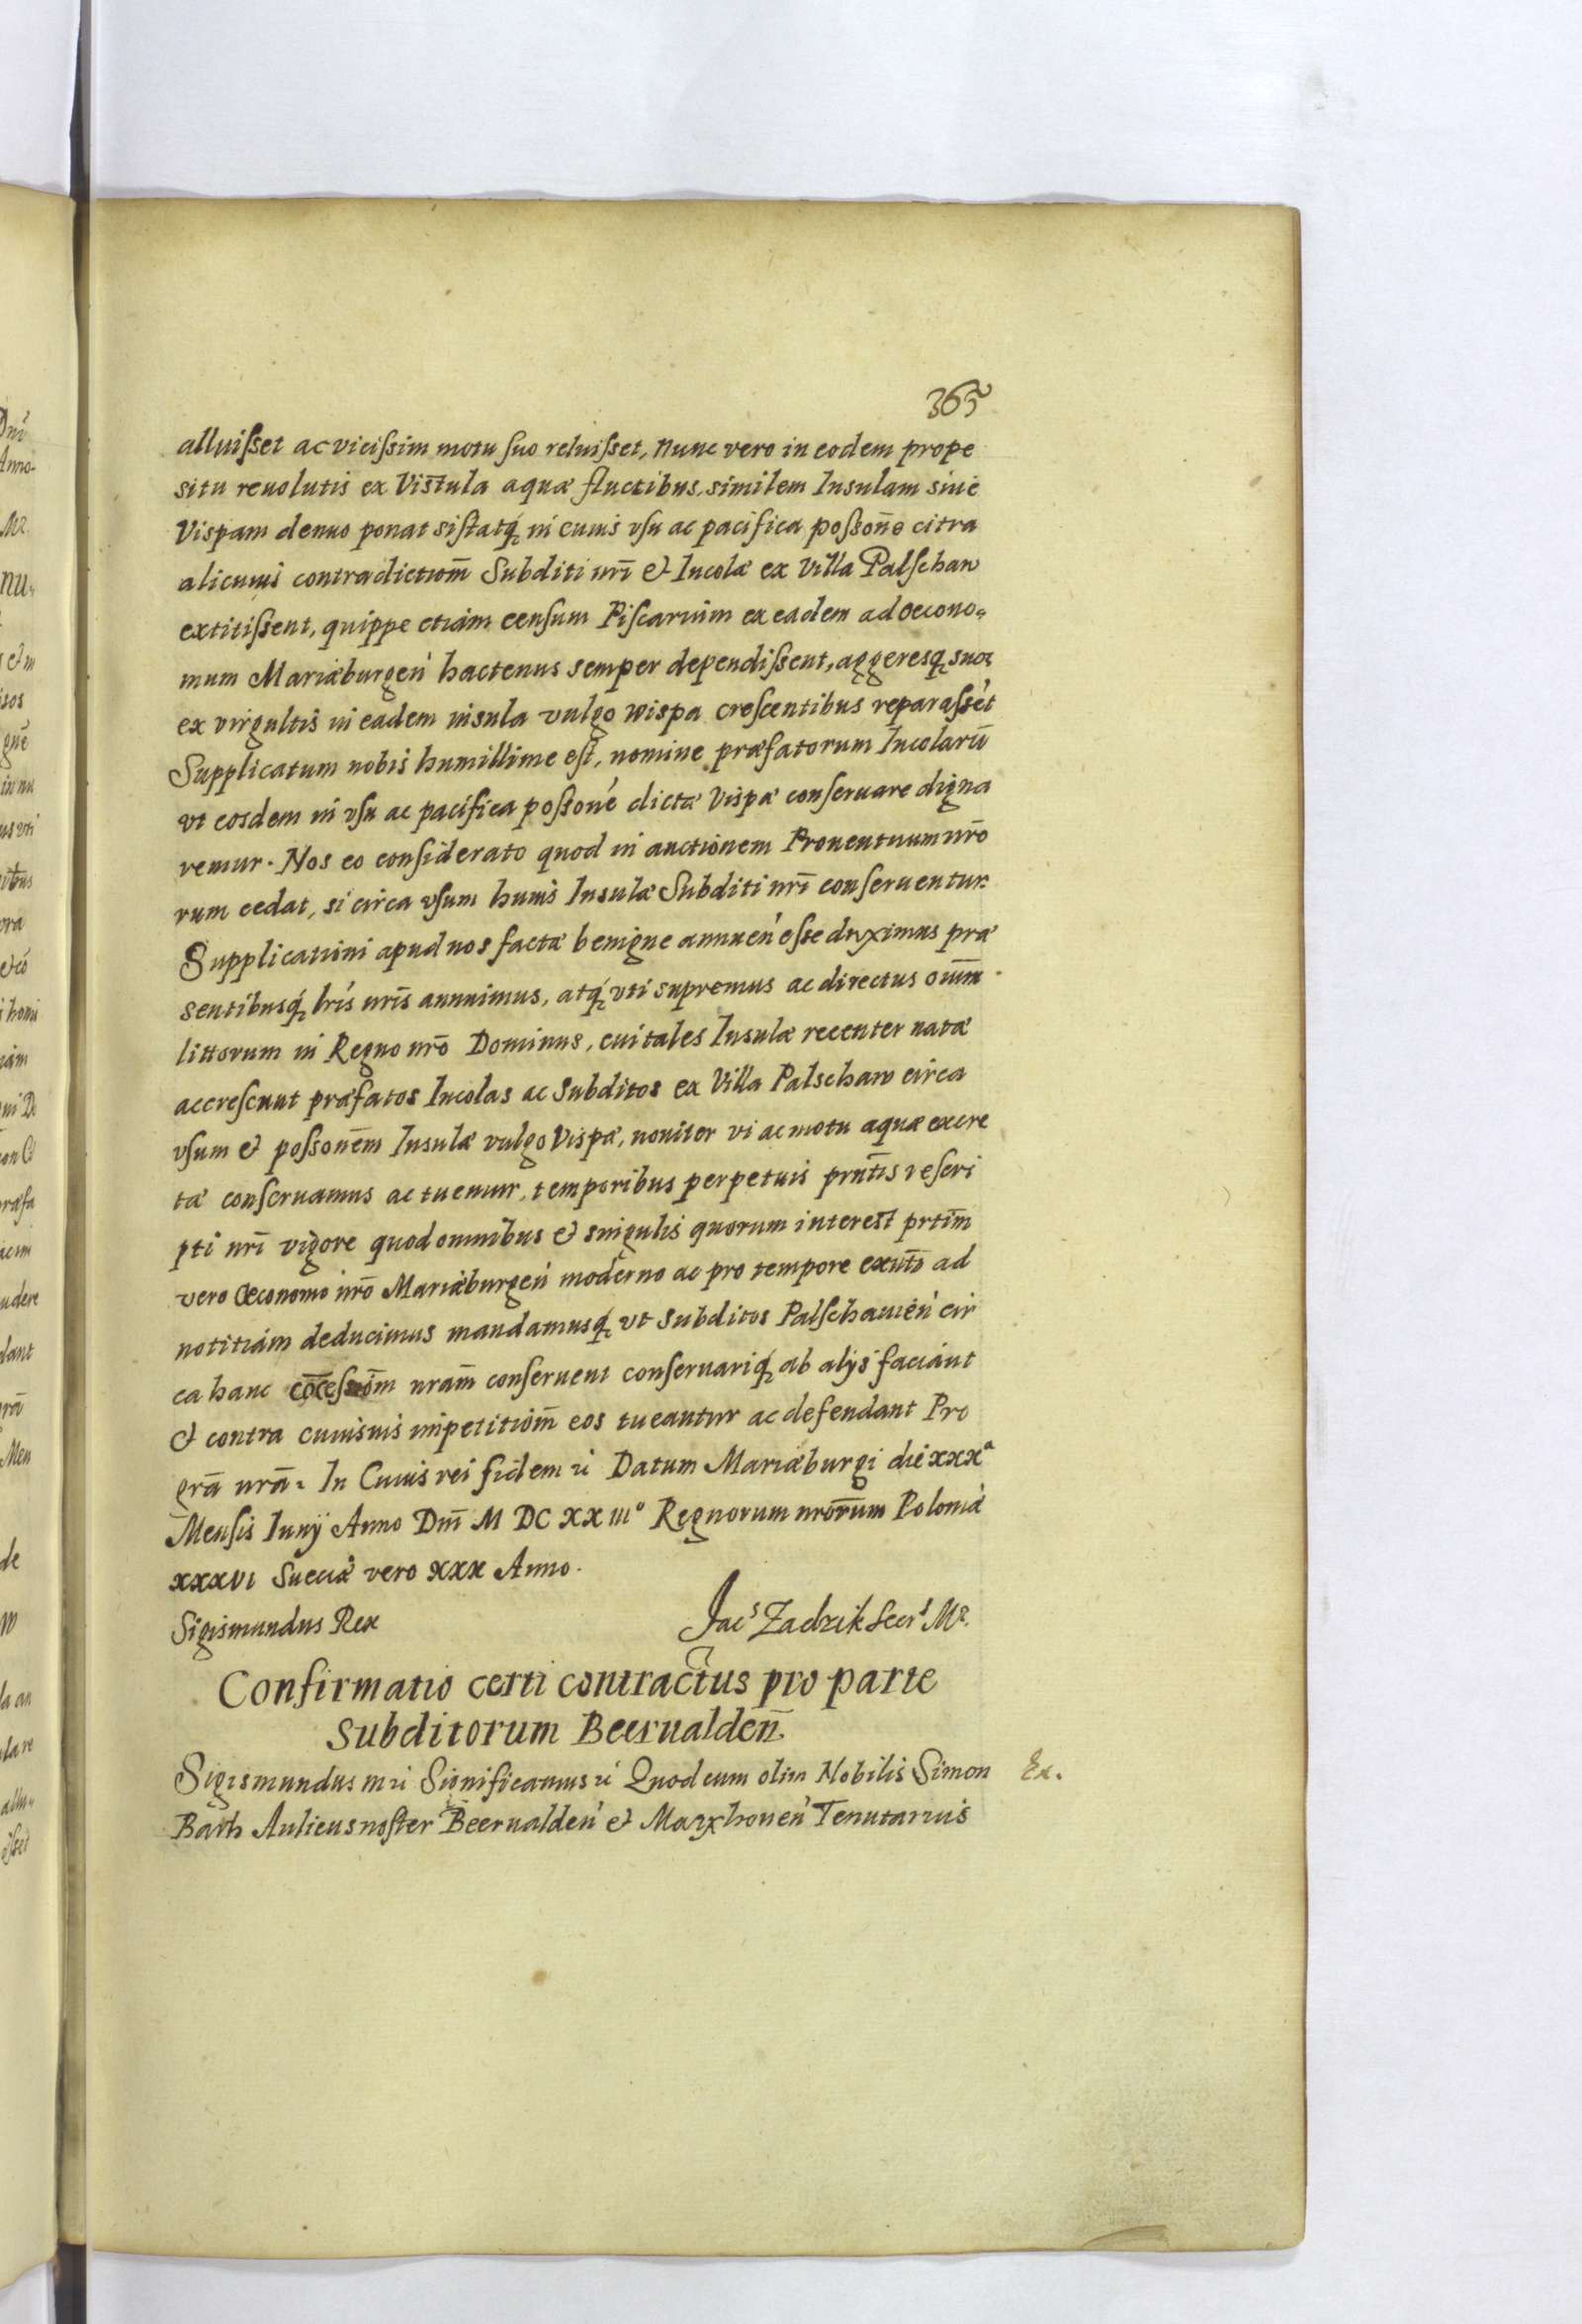 365
alluisset ac vicissim motu suo reluisset, Nunc vero in eodem prope
situ reuolutis ex Vistula aquæ fluctibus, similem Insulam siue
Vispam denuo ponat sistatq́ in cuius vsu ac pacifica possone citra
alicuius contradictiom̃ Subditi nrĩ & Incolæ ex Villa Palschaw
extitissent, quippe etiam censum Piscarium ex eadem ad oecono=
mum Mariæburgeń hactenus semper dependissent, aggeresq́ suos
ex virgultis in eadem insula vulgo wispa crescentibus reparassét
Supplicatum nobis humillime est, nomine præfatorum Incolarũ
vt eosdem in vsu ac pacifica possoné dictæ Vispæ conseruare digna
remur. Nos eo considerato quod in auctionem Prouentuum nrõ
rum cedat, si circa vsum huius Insulæ Subditi nrĩ conseruentur.
Supplicationi apud nos factæ benigne annueń esse duximus præ
sentibusq́ lrís nrĩs annuimus, atq́ vti supremus ac directus oium̃
littorum in Regno nrõ Dominus, cui tales Insulæ recenter natæ
accrescunt præfatos Incolas ac Subditos ex Villa Palschaw circa
vsum & possonẽm Insulæ vulgo Vispæ, nouiter vi ac motu aquæ excre
tæ conseruamus ac tuemur, temporibus perpetuis prñtis rescri
pti nrĩ vigore quod omnibus & singulis quorum interest prtim̃
vero Œconomo nrõ Mariæburgeń moderno ac pro tempore exnt̃i ad
notitiam deducimus mandamusq́ vt subditos Palschauień cir
ca hanc cõcessiom̃ nram̃ conseruent conseruariq́ ab alijs faciant
& contra cuiusuis impetitiom̃ eos tueantur ac defendant Pro
grã nrã. In Cuius rei fidem ꝛc Datum Mariæburgi die xxxª
Mensis Iunij Anno Dnĩ M DC XX IIIº Regnorum nrorũm Poloniæ
xxxvi Sueciæ vero xxx Anno.
Sigismundus Rex Jacˢ Zadzik Secrˢ Mʀ.
Confirmatio certi contractus pro parte
Subditorum Beerualdeñ
Sigismundus III ꝛc Significamus ꝛc Quod cum olim Nobilis Simon Ex.
Barth Aulicus noster Beerualdeń & Marxhoueń Tenutarius